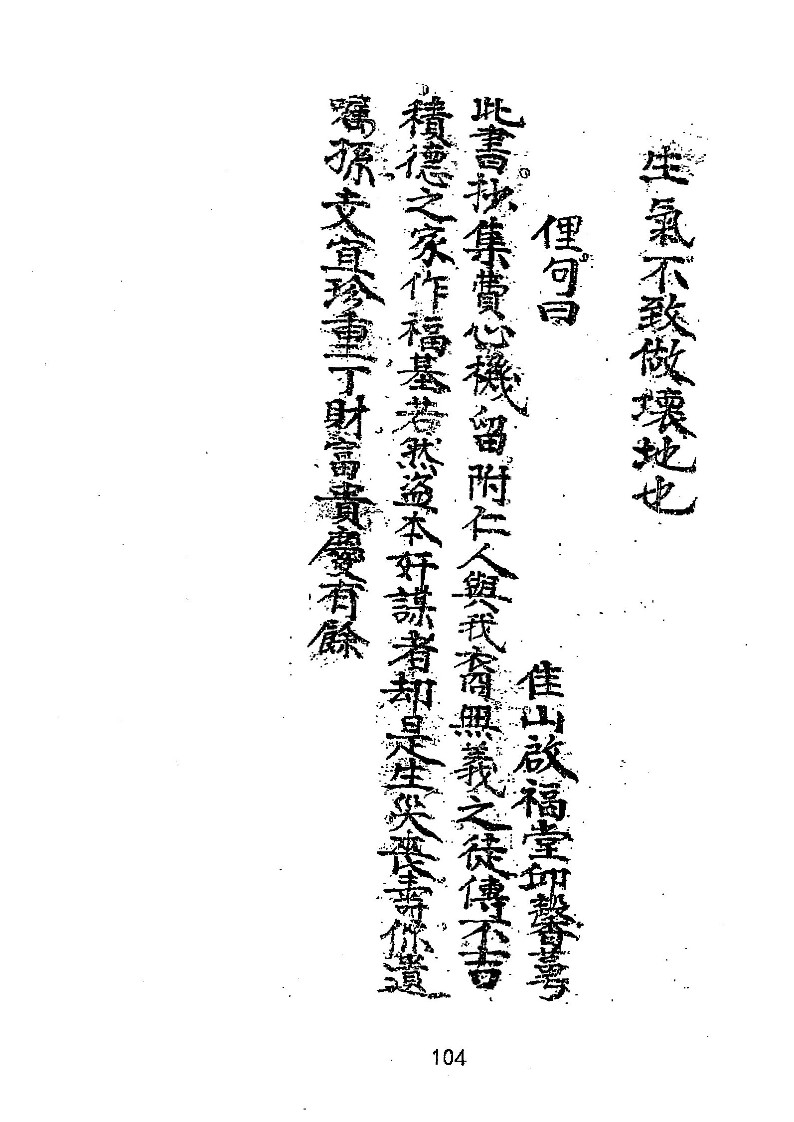 生氣不致做壞地也
俚句曰
佳山啟福堂邱馨萼
此書抄集費心機留附仁人與我裔無義之徒傳不吉
積德之家作福基若然盜本奸謀者却是生災喪壽保遺
囑孫支宜珍重丁財富貴慶有餘
104